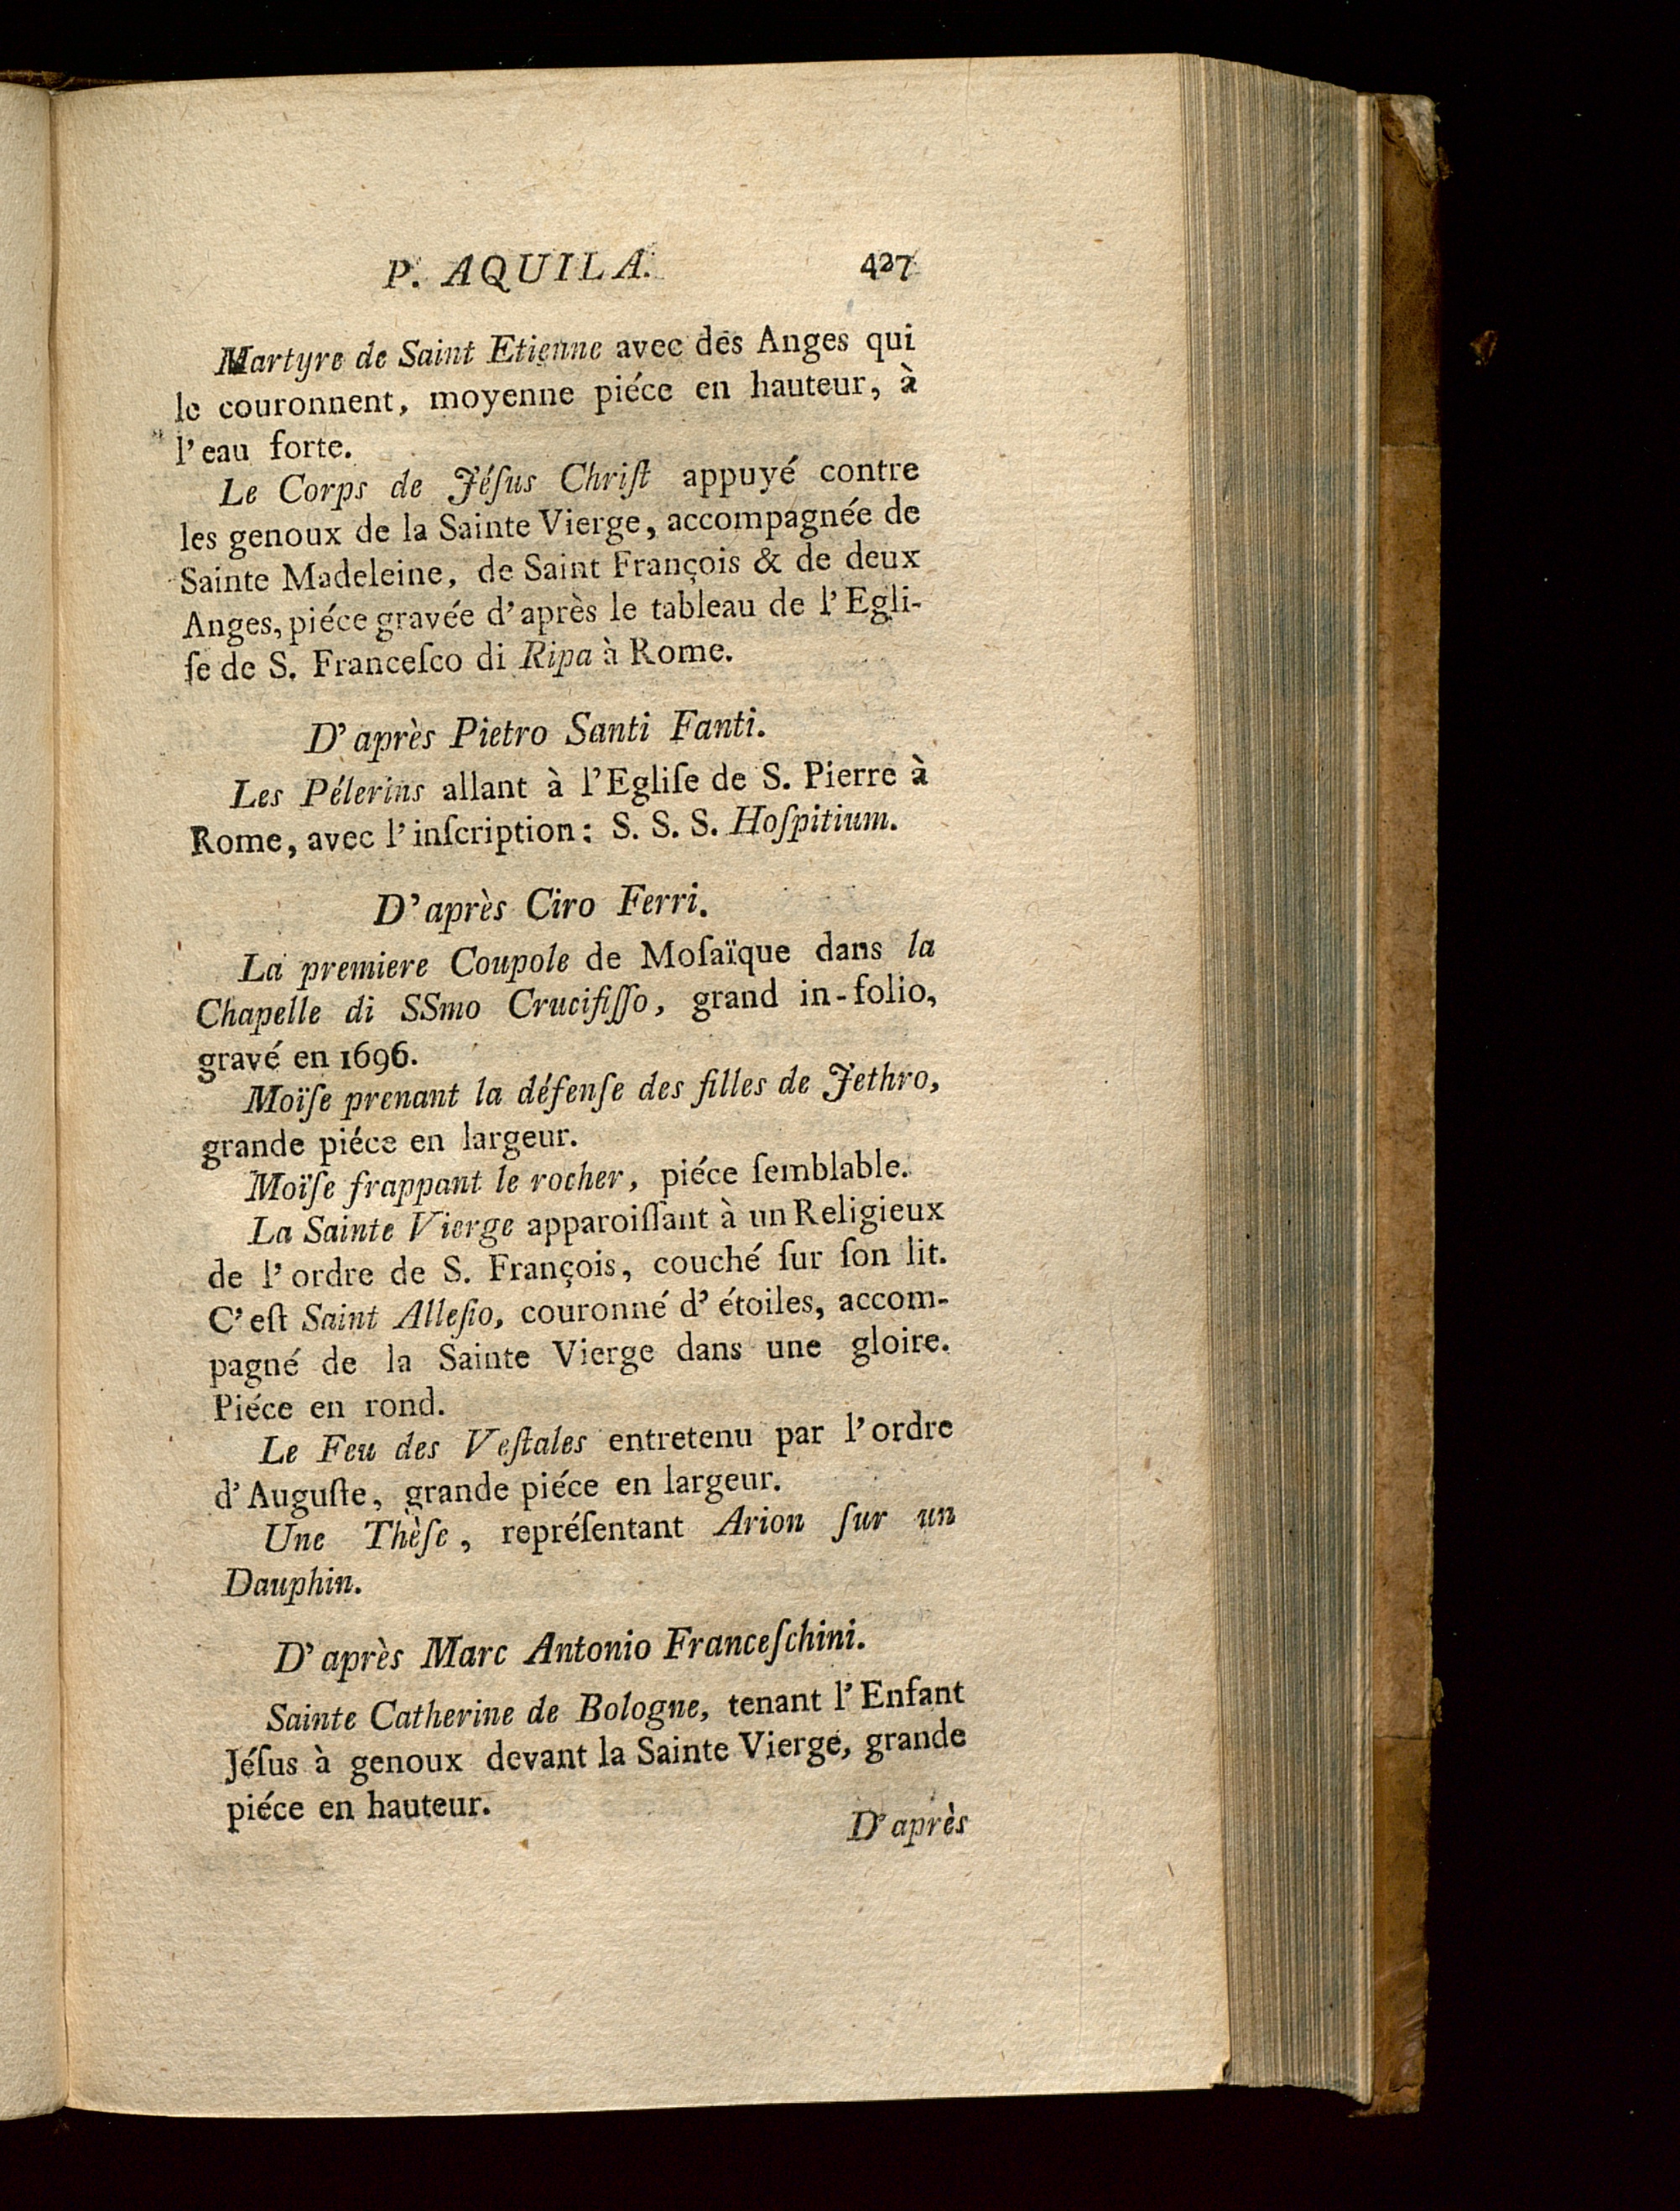 P. AQUILA. 427
Martyre de Saint Etienne avec des Anges qui
le couronnent, moyenne piéce en hauteur, à
l'eau forte.
Le Corps de Jéſus Chriſt appuyé contre
les genoux de la Sainte Vierge, accompagnée de
Sainte Madeleine, de Saint François & de deux
Anges, piéce gravée d'après le tableau de l'Egli-
ſe de S. Franceſco di Ripa à Rome.
D'après Pietro Santi Fanti.
Les Pélerins allant à l'Egliſe de S. Pierre à
Rome, avec l'inſcription: S. S. S. Hoſpitium.
D'après Ciro Ferri.
La premiere Coupole de Moſaïque dans la
Chapelle di SSmo Crucifiſſo, grand in-folio,
gravé en 1696.
Moïſe prenant la défenſe des filles de Jethro,
grande piéce en largeur.
Moïſe frappant le rocher, piéce ſemblable.
La Sainte Vierge apparoiſſant à un Religieux
de l'ordre de S. François, couché ſur ſon lit.
C'eſt Saint Alleſio, couronné d'étoiles, accom-
pagné de la Sainte Vierge dans une gloire.
Piéce en rond.
Le Feu des Veſtales entretenu par l'ordre
d'Auguſte, grande piéce en largeur.
Une Thèſe, repréſentant Arion ſur un
Dauphin.
D'après Marc Antonio Franceſchini.
Sainte Catherine de Bologne, tenant l'Enfant
Jéſus à genoux devant la Sainte Vierge, grande
piéce en hauteur.
D'après